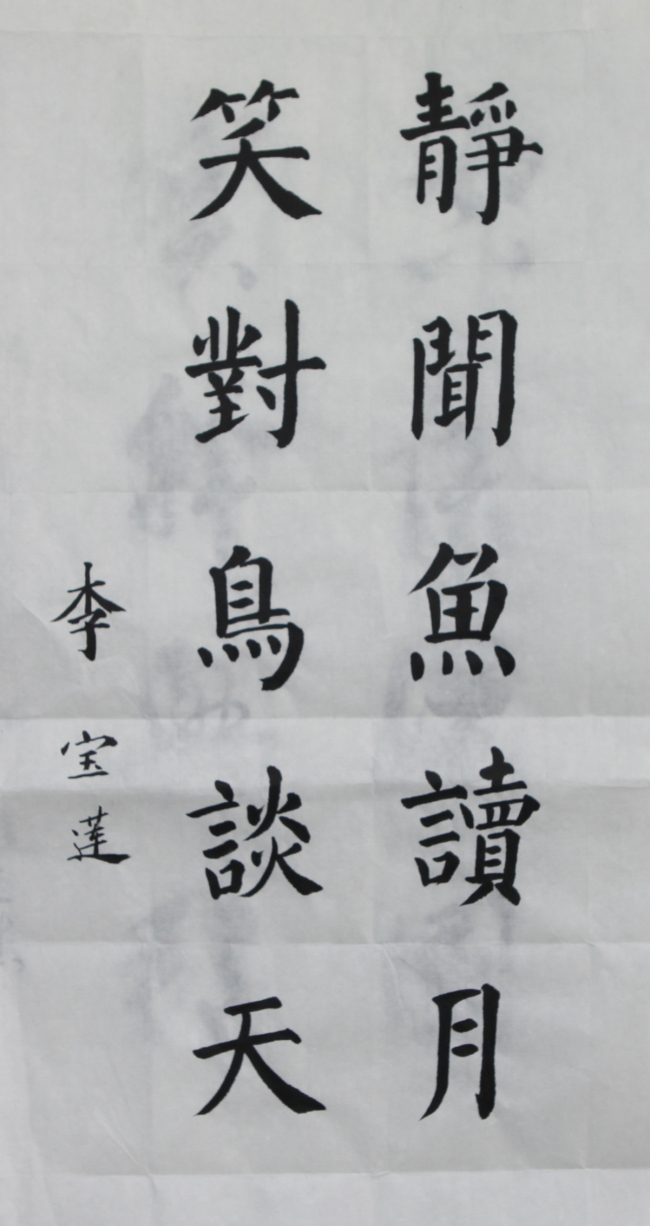 靜聞魚讀月
笑對鳥談天
李宝莲